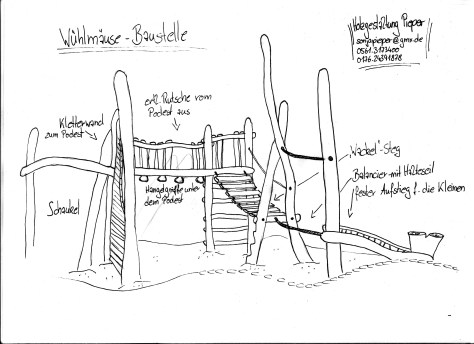 Wühlmäuse-Baustelle
Holzgestaltung Pieper
sonjapieper@gmx.de
0561.3173400
0176.24391878
Kletterwand
zum Podest
evtl. Rutsche vom
Podest aus
Schaukel
Hangelgriffe unter
dem Podest
"Wackel"-Steg
Balancier-mit Halteseil
fester Aufstieg f. die Kleinen